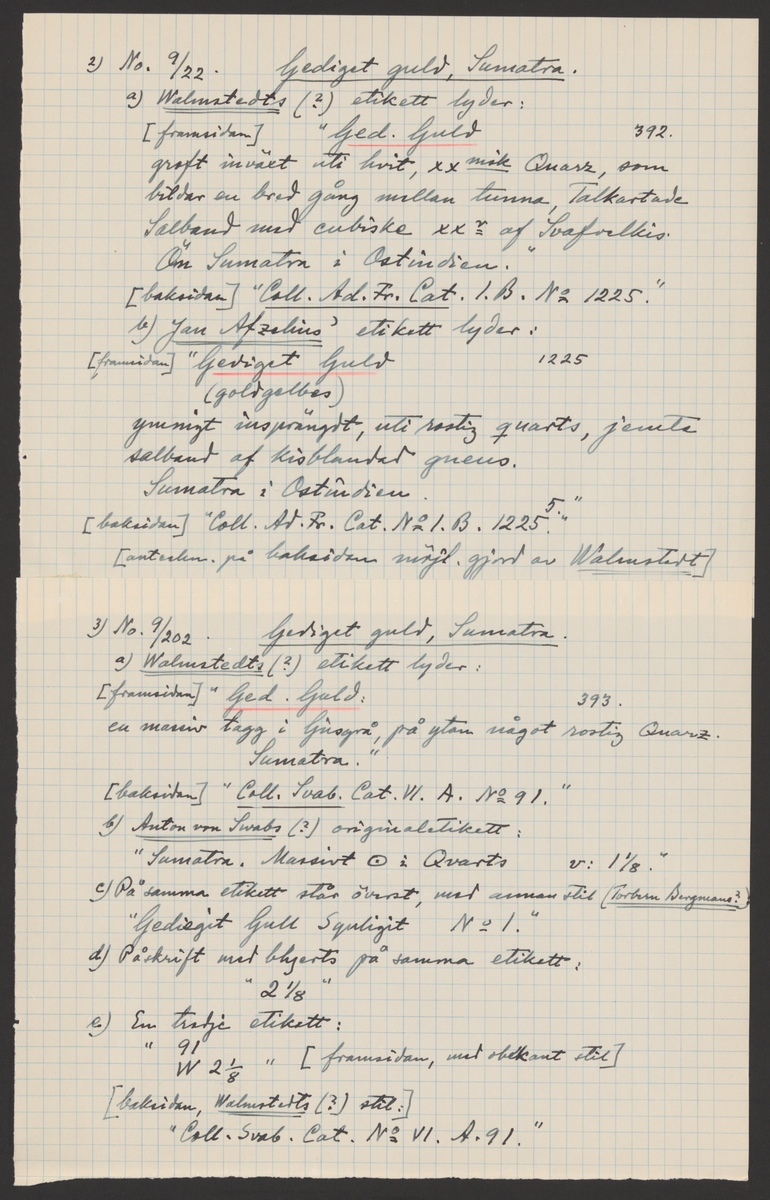 2) No. 9/22. Gediget guld, Sumatra.
a) Walmstedts (?) etikett lyder:
[framsidan] "Ged. Guld 392.
groft inväxt uti hvit, xx misk Quarz, som
bildar en bred gång mellan tunna, Talkartade
Salband med cubiske xxr af Svafvelkis.
Ön Sumatra i Ostindien."
[baksidan] "Coll. Ad. Fr. Cat. I. B. No 1225."
b) Jan Afzelius' etikett lyder:
[framsidan] "Gediget Guld 1225
(goldgelbes)
ymnigt insprängdt, uti rostig quarts, jemte
salband af kisblandad gneus.
Sumatra i Ostindien.
5."
[baksidan] "Coll. Ad. Fr. Cat. No I. B. 1225."
[anteckn. på baksidan möjl. gjord av Walmstedt]
3) No. 9/202. Gediget guld, Sumatra.
a) Walmstedts (?) etikett lyder:
[framsidan] "Ged. Guld: 393.
en massiv tagg i ljusgrå, på ytan något rostig Quarz.
Sumatra."
[baksidan] "Coll. Svab. Cat. VI. A. No 91."
b) Anton von Swabs (?) originaletikett:
"Sumatra. Massivt ⊙ i Qvarts v: 1 1/8."
c) På samma etikett står överst, med annan stil (Torbern Bergmans?)
"Ediegit Gull Synligit No 1."
d) Påskrift med blyerts på samma etikett:
"2 1/8"
e) En tredje etikett:
" 91
W 2 1/8 " [framsidan, med obekant stil]
[baksidan, Walmstedts (?) stil:]
"Coll. Svab. Cat. No VI. A. 91."